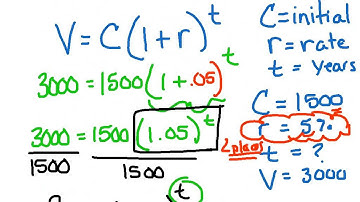 V = C(1+r)^t
3000 = 1500(1+.05)^t
3000 = 1500(1.05)^t
1500 1500
t
C = initial
r = rate
t = years
C = 1500
r = 5%
2 places
t = ?
V = 3000